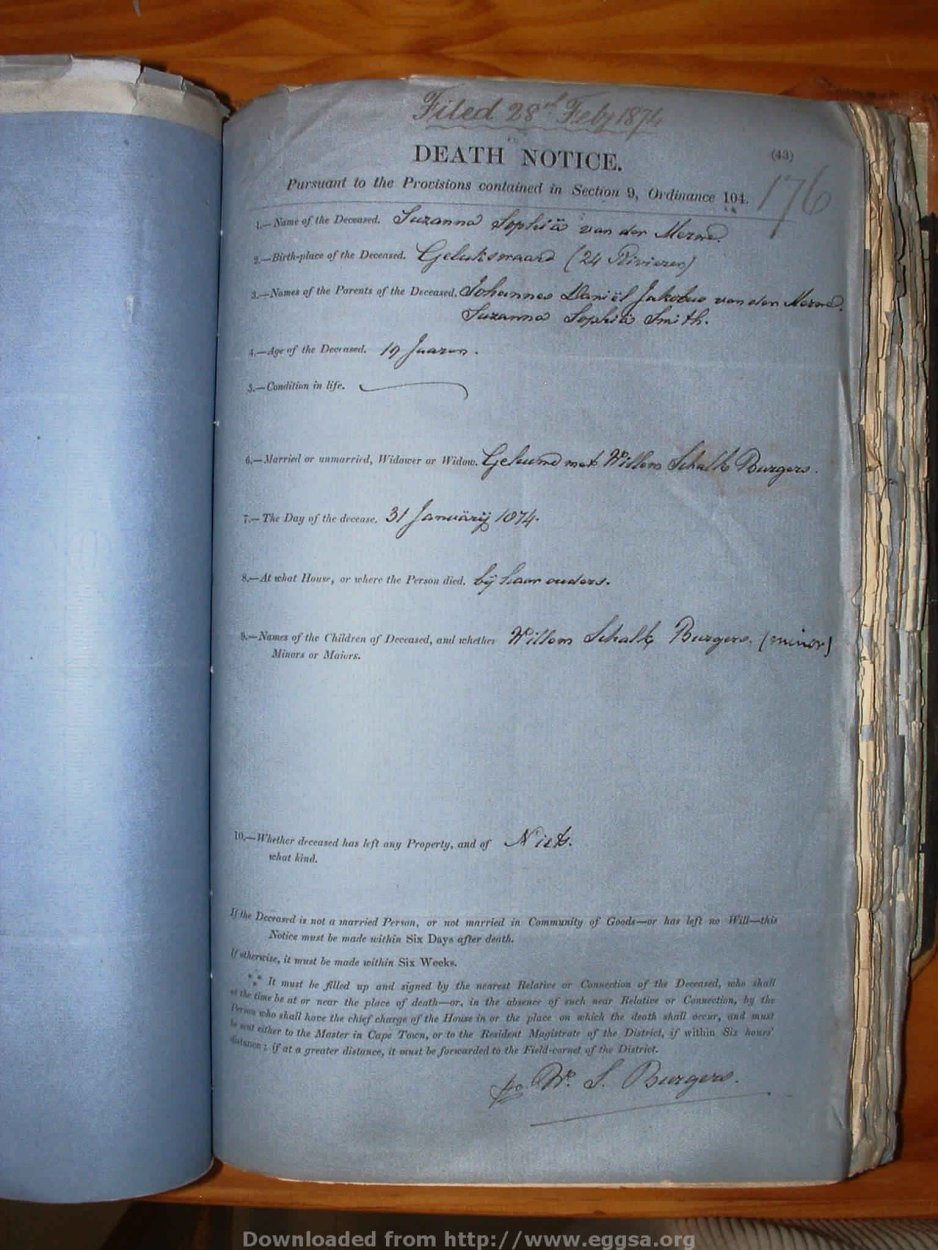 Filed 28th Feby 1874
DEATH NOTICE.
(43)
176
Pursuant to the Provisions contained in Section 9, Ordinance 104.
1.—Name of the Deceased. Suzanna Sophia van der Merwe.
2.—Birth-place of the Deceased. Gelukswaard (24 Rivieren)
3.—Names of the Parents of the Deceased. Johannes Daniël Jakobus van der Merwe.
Suzanna Sophia Smith.
4.—Age of the Deceased. 19 Jaaren.
5.—Condition in life.
6.—Married or unmarried, Widower or Widow. Gehuwd met Willem Schalk Burgers.
7.—The Day of the decease. 31 Januarij 1874.
8.—At what House, or where the Person died. bij haar ouders.
9.—Names of the Children of Deceased, and whether Willem Schalk Burgers. (minor)
Minors or Majors.
10.—Whether deceased has left any Property, and of Niets.
what kind.
If the Deceased is not a married Person, or not married in Community of Goods—or has left no Will—this
Notice must be made within Six Days after death.
If otherwise, it must be made within Six Weeks.
*** It must be filled up and signed by the nearest Relative or Connection of the Deceased, who shall
at the time be at or near the place of death—or, in the absence of such near Relative or Connection, by the
Person who shall have the chief charge of the House in or the place on which the death shall occur, and must
be sent either to the Master in Cape Town, or to the Resident Magistrate of the District, if within Six hours'
distance; if at a greater distance, it must be forwarded to the Field-cornet of the District.
W. S. Burgers.
Downloaded from http://www.eggsa.org